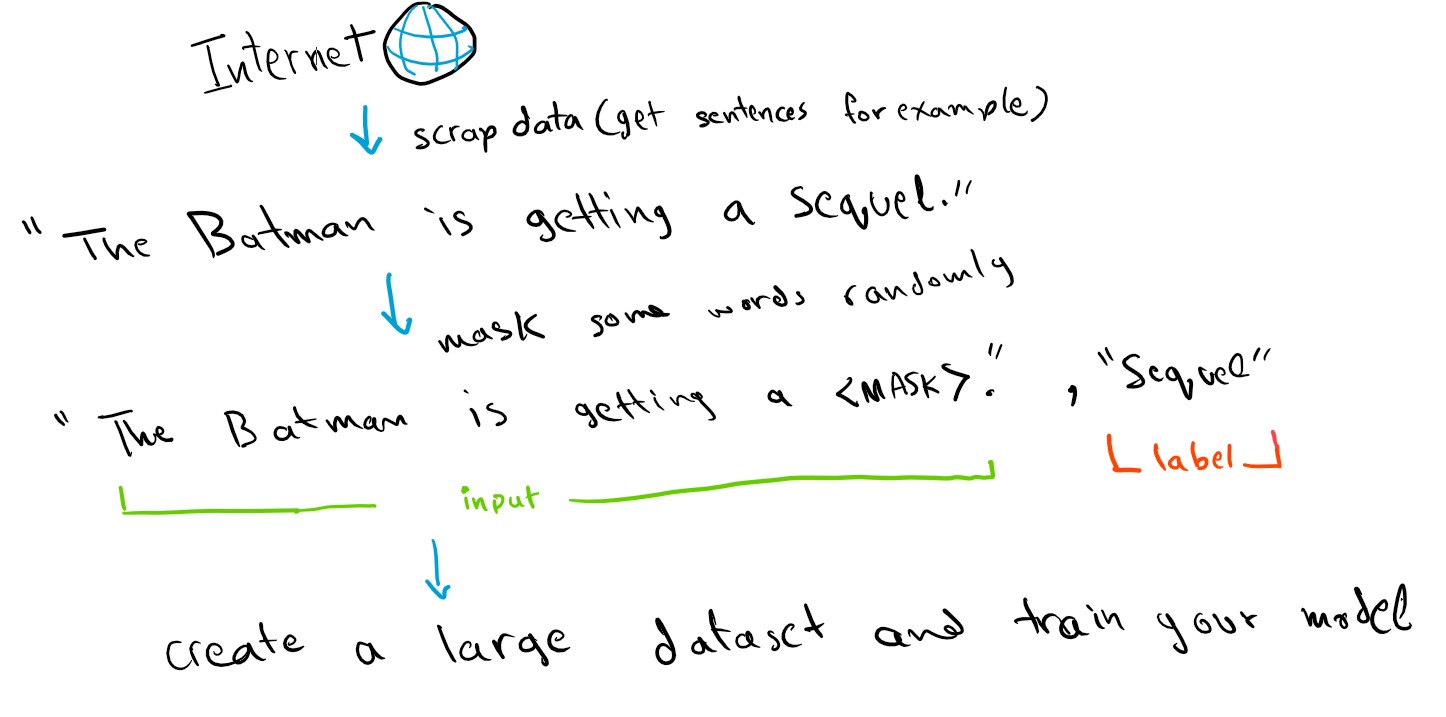 Internet
scrap data (get sentences for example)
"The Batman is getting a sequel."
mask some words randomly
"The Batman is getting a <MASK>." , "Sequel"
label
input
create a large dataset and train your model